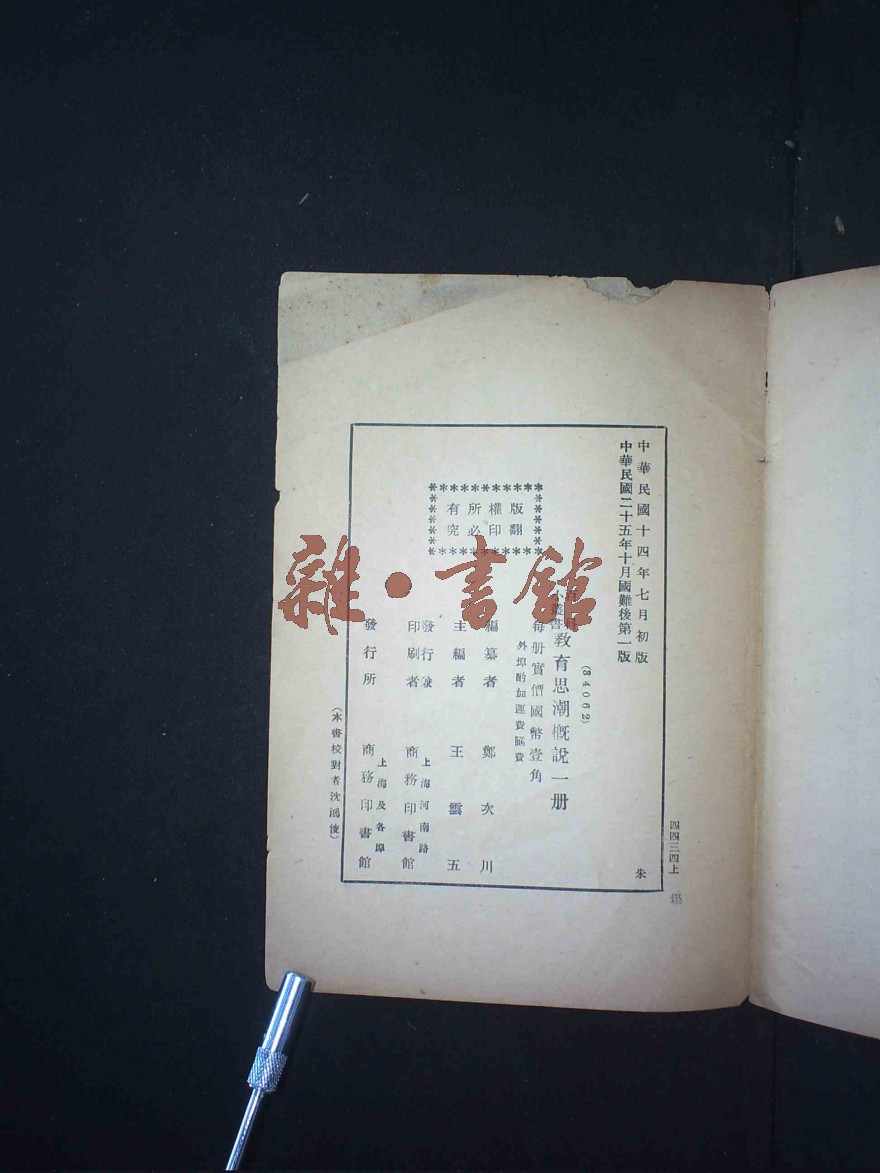 中華民國十四年七月初版
中華民國二十五年十月國難後第一版
(34062)
小叢書
教育思潮概說一册
每册實價國幣壹角
外埠酌加運費匯費
版權所有
翻印必究
編纂者 鄭次川
主編者 王雲五
發行兼
印刷者
上海河南路
商務印書館
發行所
上海及各埠
商務印書館
(本書校對者沈鴻俊)
四四三四上
朱
雜·書館